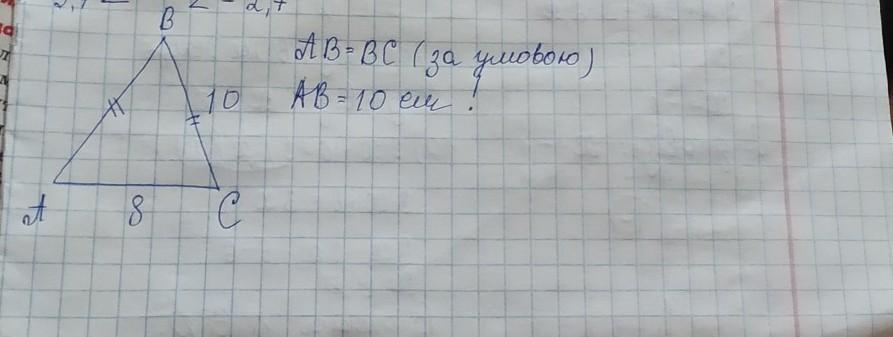 B
AB = BC (за умовою)
10
AB = 10 см!
A
8
C